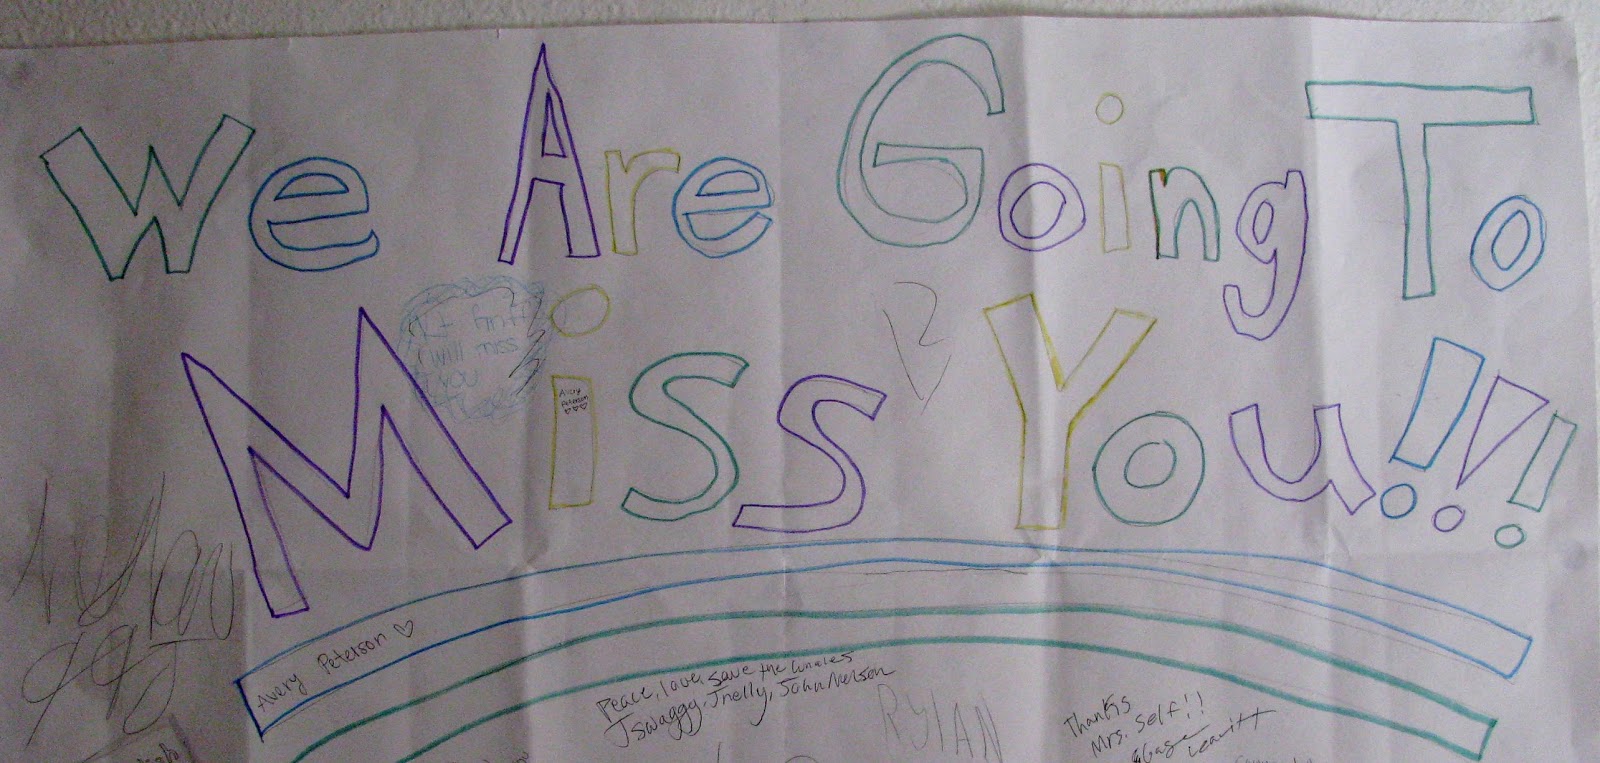 We Are Going To
Miss You!!!
will miss
you
Avery
Peterson
Avery Peterson ♡
Peace, love, save the whales
J swaggy, Jnelly, John Nelson
RYIAN
Thanks
Mrs. Self!!
Leavitt